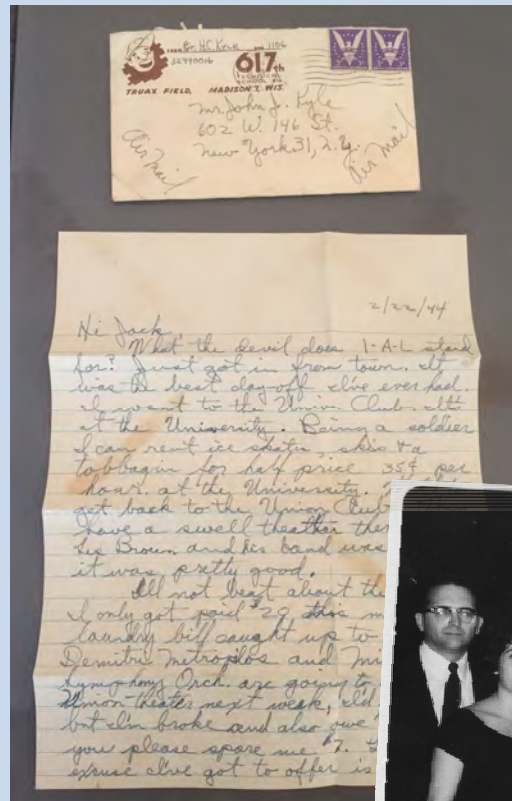 FROM Pvt. H.C. Kyle 1106
32990016
617th
TECHNICAL
SCHOOL SQ.
TRUAX FIELD, MADISON 7, WIS.
Mr. John J. Kyle
602 W. 146 St.
New York 31, N.Y.
Air Mail
Air Mail
2/22/44
Hi Jack,
What the devil does 1-A-L stand
for? Just got in from town. It
was the best day-off I've ever had.
I went to the Union Club. It's
at the University. Being a soldier
I can rent ice skates, skis & a
tobbagin for half price 35¢ per
hour. at the University.
get back to the Union Club
have a swell theather
Les Brown and his band
it was pretty good.
I'll not beat about the
I only got paid $20 this
laundry bill caught up to
Demitri Metropilos and
Symphony Orch. are going to
Union theater next week, I'd
but I'm broke and also owe
you please spare me $7.
excuse I've got to offer is